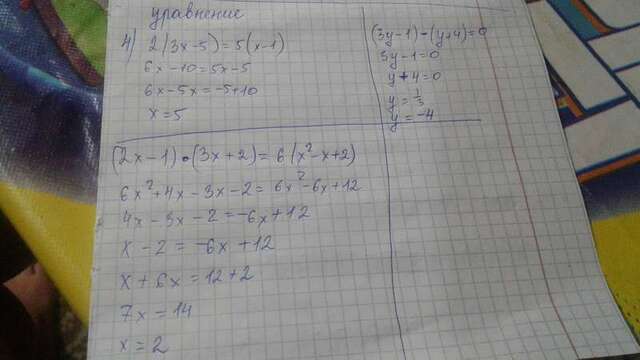 уравнение
4) 2(3x-5)=5(x-1)
6x-10=5x-5
6x-5x=-5+10
x=5
(3y-1)•(y+4)=0
3y-1=0
y+4=0
y=1/3
y=-4
(2x-1)•(3x+2)=6(x²-x+2)
6x²+4x-3x-2=6x²-6x+12
4x-3x-2=-6x+12
x-2=-6x+12
x+6x=12+2
7x=14
x=2